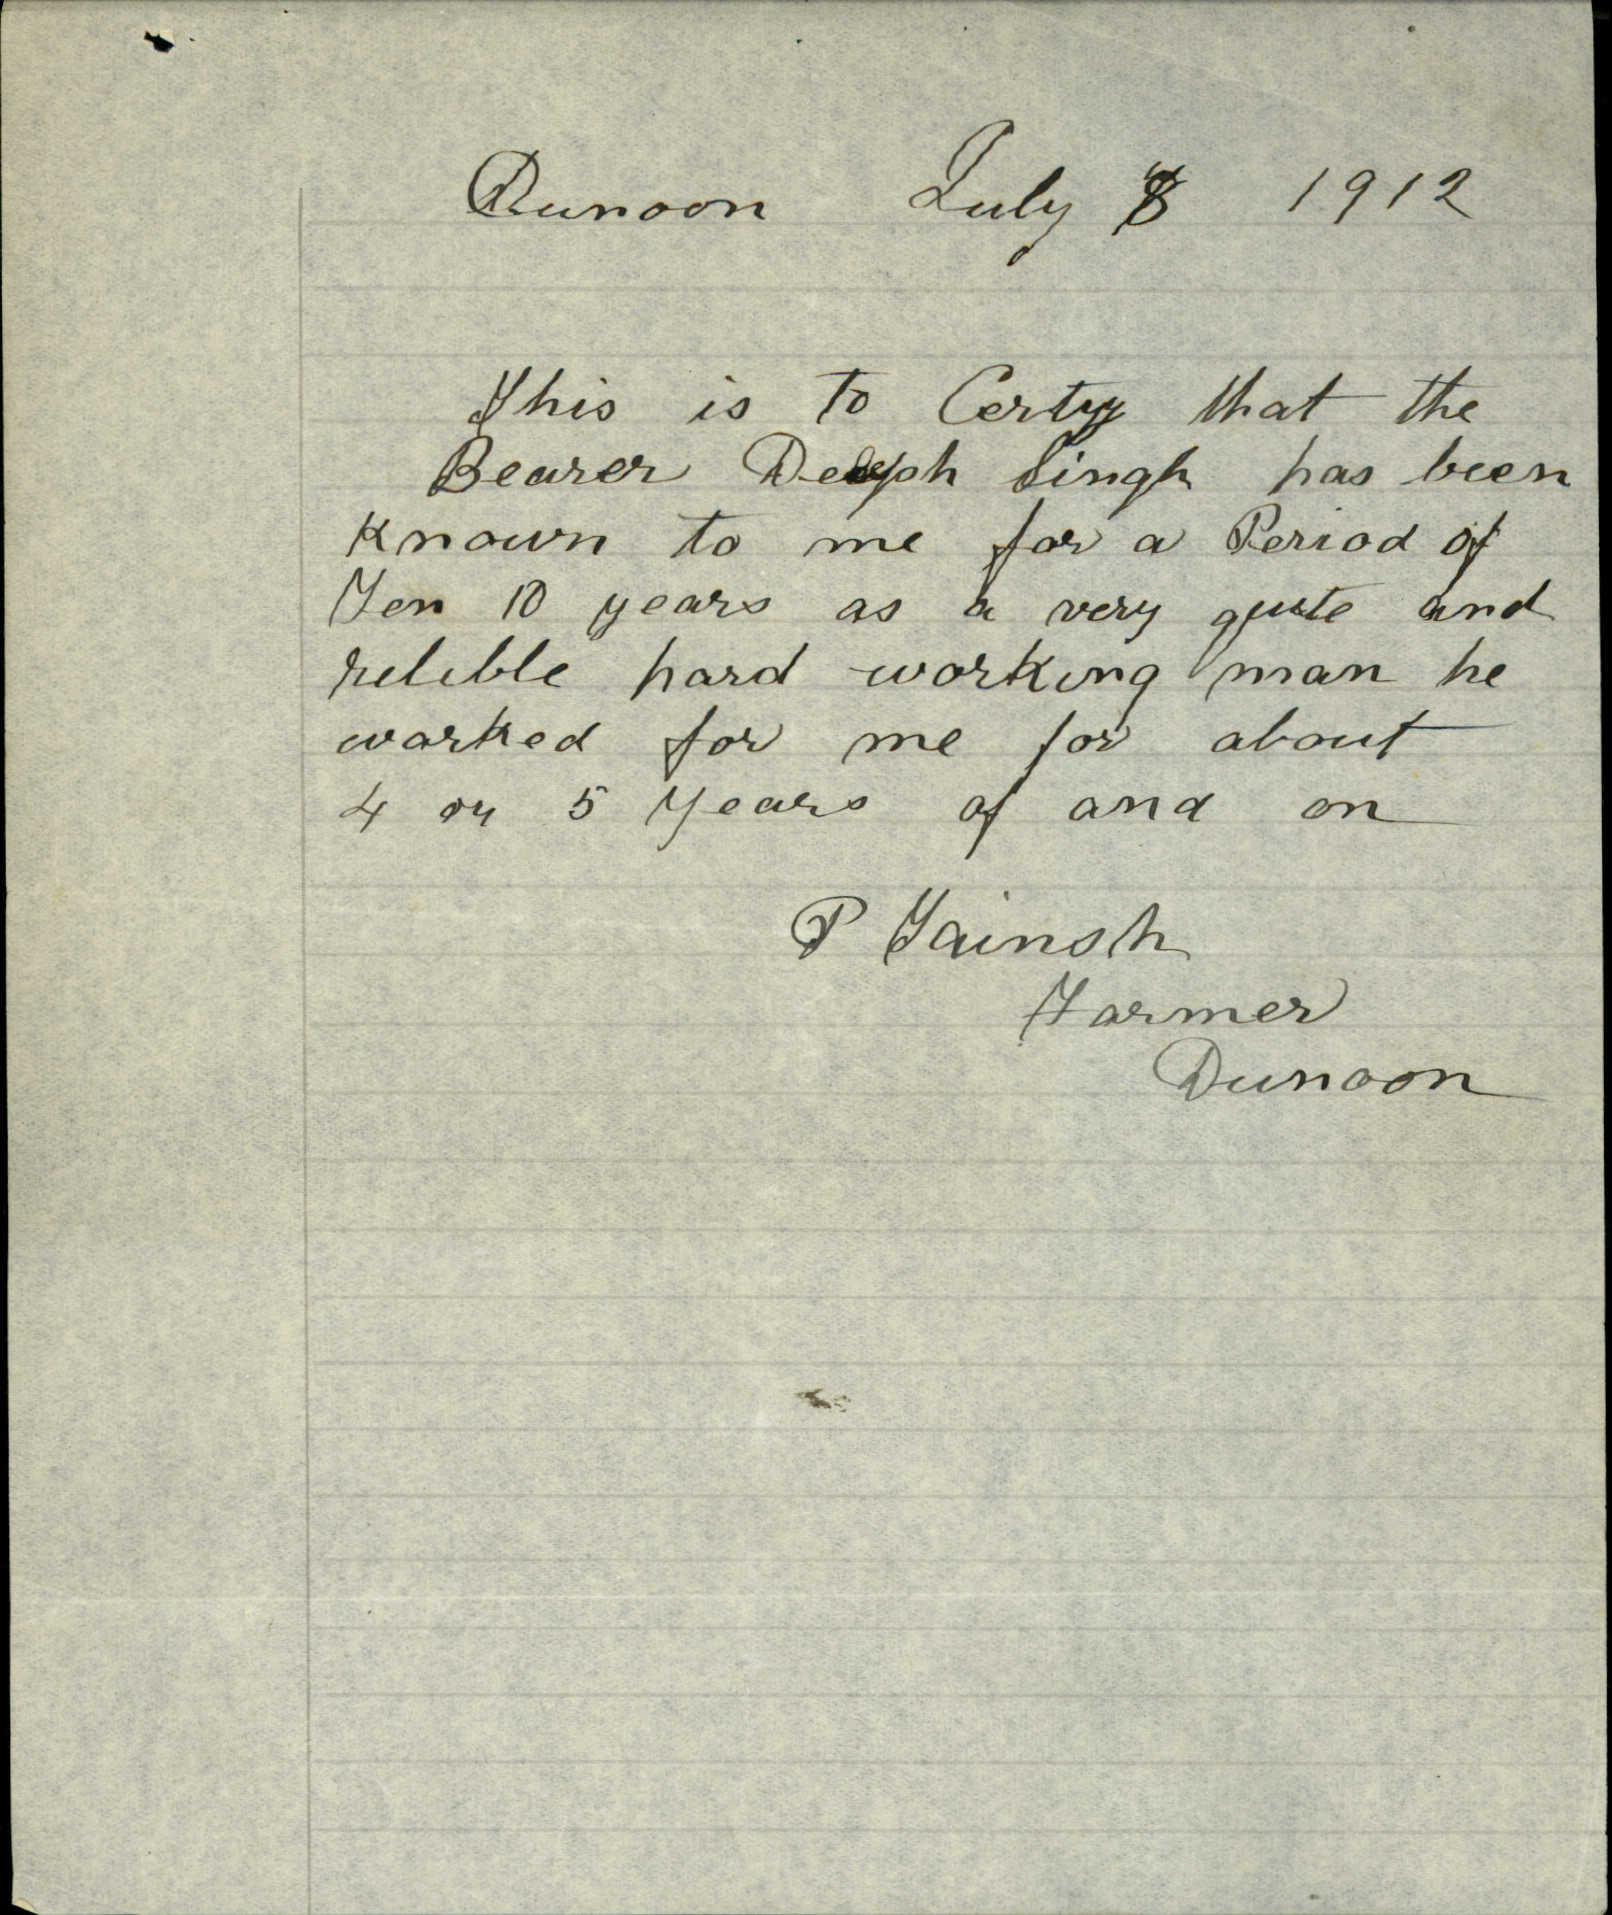 Dunoon July 8 1912
This is to Certyy that the
Bearer Deeph Singh has been
known to me for a Period of
Ten 10 years as a very quite and
relible hard working man he
worked for me for about
4 or 5 Years of and on
P Tainsh
Farmer
Dunoon